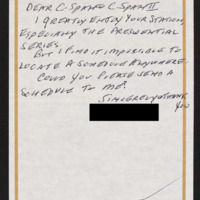 DEAR C-SPAN & C-SPAN II
I GREATLY ENJOY YOUR STATION,
ESPECIALLY THE PRESIDENTIAL
SERIES.
BUT I FIND IT IMPOSSIBLE TO
LOCATE A SCHEDULE ANYWHERE.
COULD YOU PLEASE SEND A
SCHEDULE TO ME?
SINCERELY & THANK
YOU